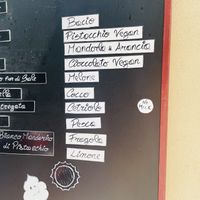 Bacio
Pistacchio Vegan
Mandorla & Arancia
Cioccolato Vegan
Melone
Cocco
Cetriolo
Pesca
Fragola
Limone
NO MILK
Bianco Mandorla
di Pistacchio